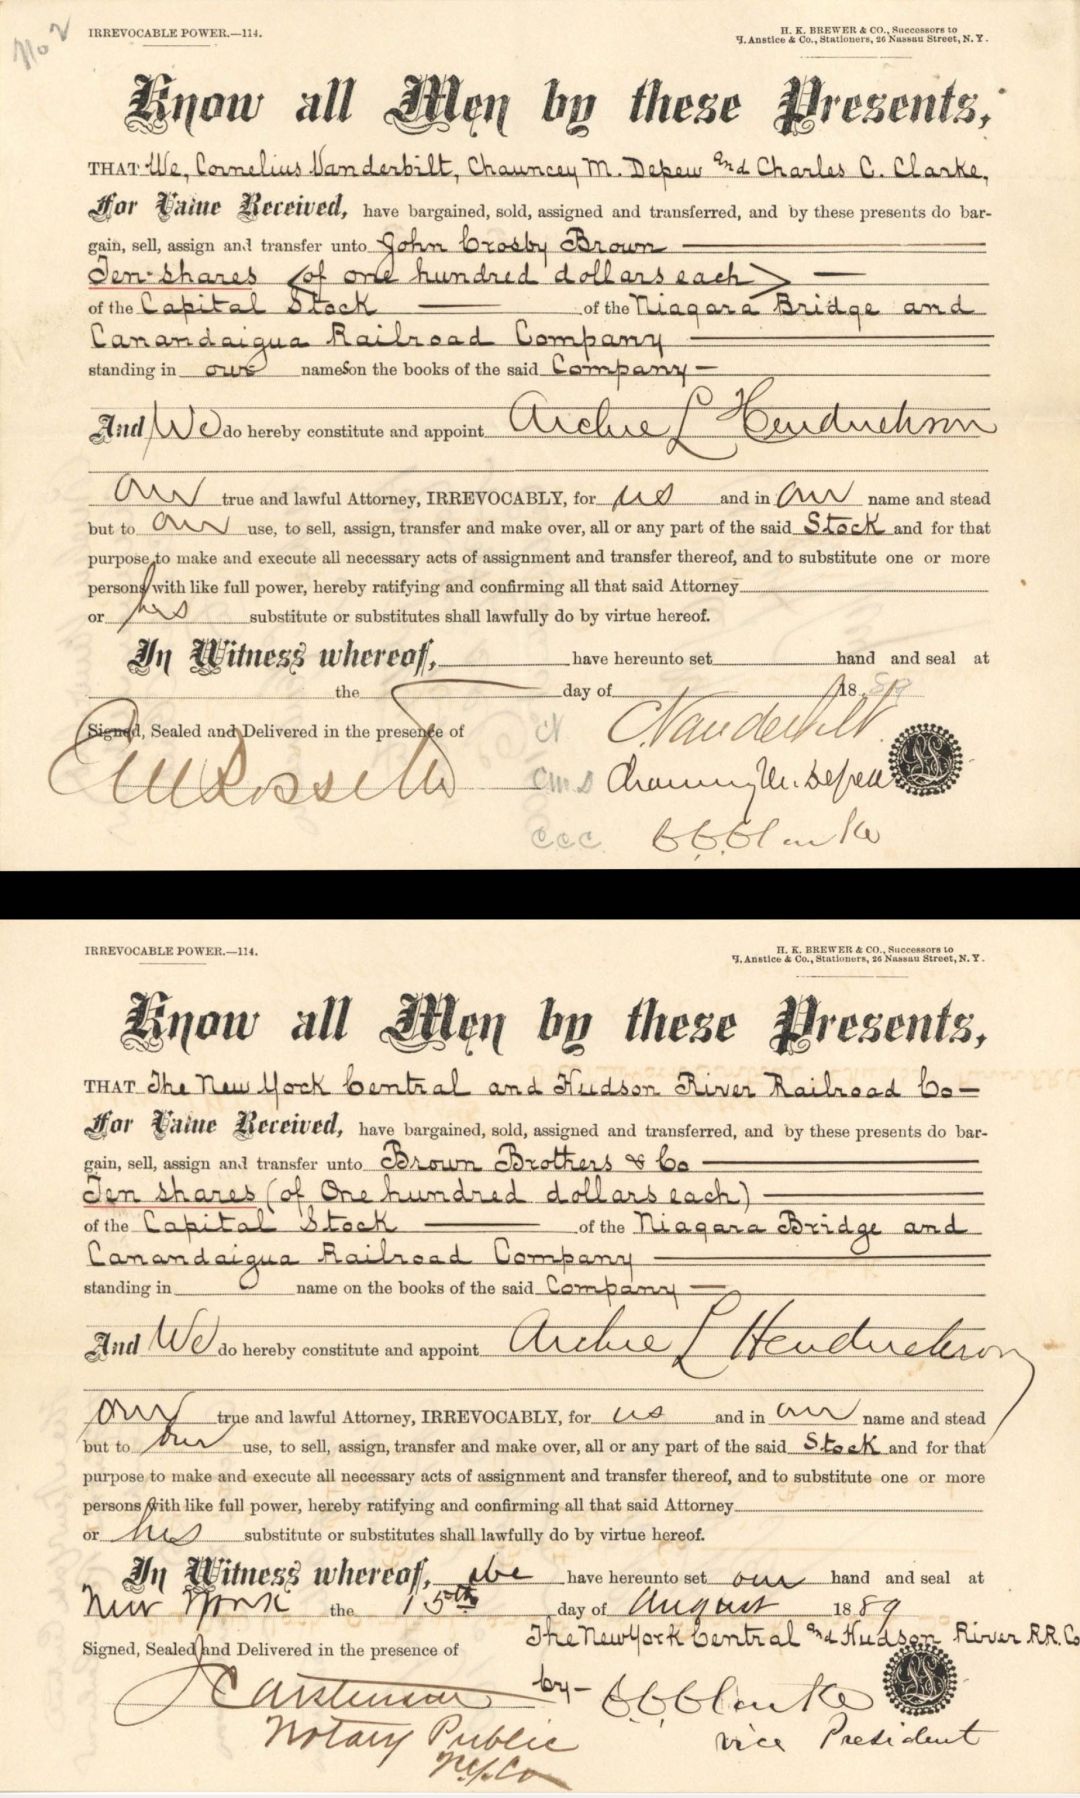 No 2
IRREVOCABLE POWER.—114.
H. K. BREWER & CO., Successors to
J. Anstice & Co., Stationers, 26 Nassau Street, N. Y.
Know all Men by these Presents,
THAT We, Cornelius Vanderbilt, Chauncey M. Depew and Charles C. Clarke,
For Value Received, have bargained, sold, assigned and transferred, and by these presents do bar-
gain, sell, assign and transfer unto John Crosby Brown
Ten shares (of one hundred dollars each)
of the Capital Stock of the Niagara Bridge and
Canandaigua Railroad Company
standing in our names on the books of the said Company
And We do hereby constitute and appoint Archie L Hendrickson
our true and lawful Attorney, IRREVOCABLY, for us and in our name and stead
but to our use, to sell, assign, transfer and make over, all or any part of the said Stock and for that
purpose to make and execute all necessary acts of assignment and transfer thereof, and to substitute one or more
persons with like full power, hereby ratifying and confirming all that said Attorney
or his substitute or substitutes shall lawfully do by virtue hereof.
In Witness whereof, have hereunto set hand and seal at
the day of 18 89
Signed, Sealed and Delivered in the presence of
CV C. Vanderbilt
EVW Rossiter CMD Chauncey M. Depew
CCC C.C. Clarke
IRREVOCABLE POWER.—114.
H. K. BREWER & CO., Successors to
J. Anstice & Co., Stationers, 26 Nassau Street, N. Y.
Know all Men by these Presents,
THAT The New York Central and Hudson River Railroad Co
For Value Received, have bargained, sold, assigned and transferred, and by these presents do bar-
gain, sell, assign and transfer unto Brown Brothers & Co
Ten shares (of One hundred dollars each)
of the Capital Stock of the Niagara Bridge and
Canandaigua Railroad Company
standing in name on the books of the said Company
And We do hereby constitute and appoint Archie L Hendrickson
our true and lawful Attorney, IRREVOCABLY, for us and in our name and stead
but to our use, to sell, assign, transfer and make over, all or any part of the said Stock and for that
purpose to make and execute all necessary acts of assignment and transfer thereof, and to substitute one or more
persons with like full power, hereby ratifying and confirming all that said Attorney
or his substitute or substitutes shall lawfully do by virtue hereof.
In Witness whereof, we have hereunto set our hand and seal at
New York the 15th day of August 1889
The New York Central and Hudson River RR. Co
Signed, Sealed and Delivered in the presence of
J Carstensen by C.C. Clarke
Notary Public vice President
N.Y. Co